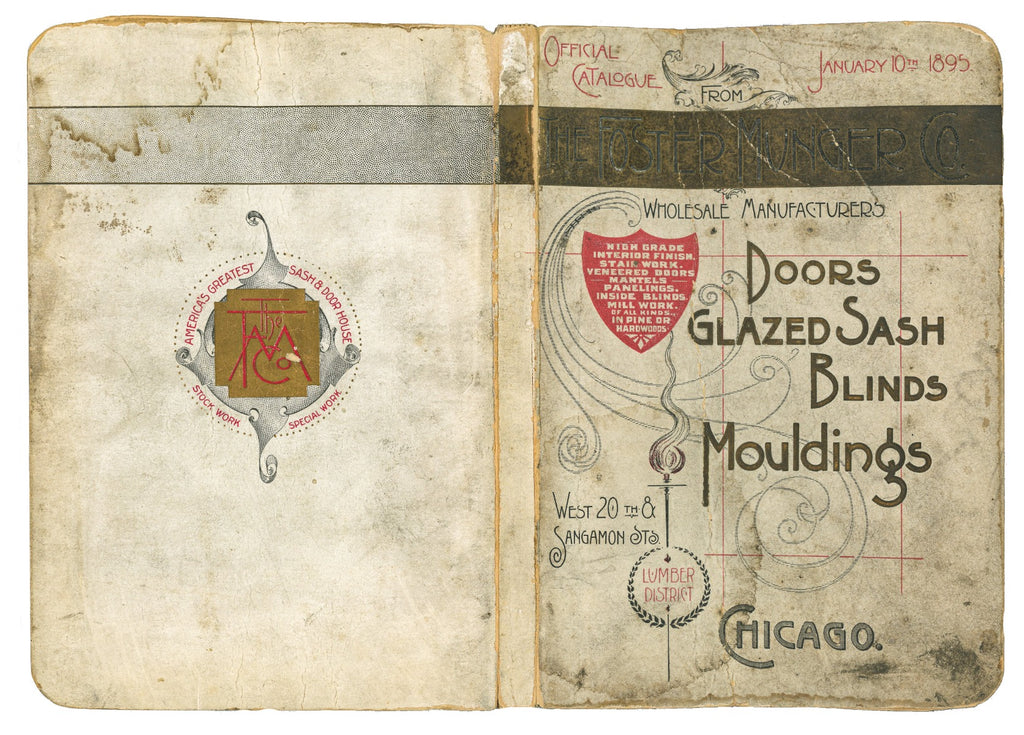 AMERICA'S GREATEST SASH & DOOR HOUSE
The
Co
STOCK WORK SPECIAL WORK
OFFICIAL
CATALOGUE
JANUARY 10TH 1895.
FROM
THE FOSTER MUNGER CO.
WHOLESALE MANUFACTURERS
HIGH GRADE
INTERIOR FINISH.
STAIR WORK.
VENEERED DOORS
MANTELS
PANELINGS.
INSIDE BLINDS.
MILL WORK.
OF ALL KINDS.
IN PINE OR
HARDWOODS
DOORS
GLAZED SASH
BLINDS
Mouldings
WEST 20TH &
SANGAMON STS.
LUMBER
DISTRICT
CHICAGO.